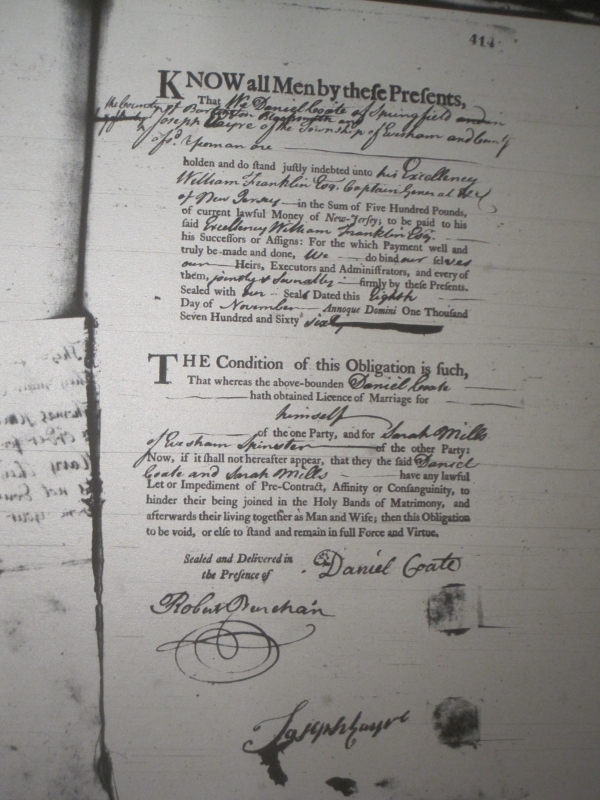 414
KNOW all Men by theſe Preſents,
That We Daniel Coate of Springfield
the County of Burlington Blacksmith and
Joseph Cayre of the Township of Evesham and County
afsd. Yeoman are
holden and do ſtand juſtly indebted unto his Excellency
William Franklin Esqr. Captain General &c
of New Jersey in the Sum of Five Hundred Pounds,
of current lawful Money of New-Jerſey; to be paid to his
ſaid Excellency William Franklin Esqr.
his Succeſſors or Aſſigns: For the which Payment well and
truly be made and done, We do bind our ſelves
our Heirs, Executors and Adminiſtrators, and every of
them, jointly & Severally firmly by theſe Preſents.
Sealed with our Seals Dated this Eighth
Day of November Annoque Domini One Thouſand
Seven Hundred and Sixty six
THE Condition of this Obligation is ſuch,
That whereas the above-bounden Daniel Coate
hath obtained Licence of Marriage for
himself
of the one Party, and for Sarah Mills
of Evesham Spinster of the other Party:
Now, if it ſhall not hereafter appear, that they the ſaid Daniel
Coate and Sarah Mills have any lawful
Let or Impediment of Pre-Contract, Affinity or Conſanguinity, to
hinder their being joined in the Holy Bands of Matrimony, and
afterwards their living together as Man and Wife; then this Obligation
to be void, or elſe to ſtand and remain in full Force and Virtue.
Sealed and Delivered in
the Preſence of
Daniel Coate
Robert Burchan
Joseph Cayre